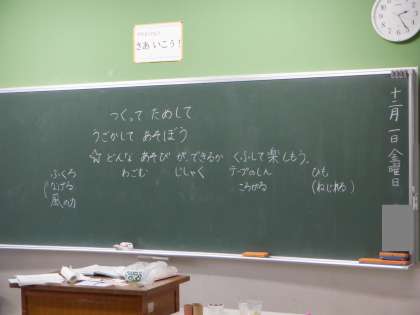 さあ いこう!
つくって ためして
うごかして あそぼう
☆どんな あそび が、できるか くふして楽しもう。
ふくろ わごむ じしゃく テープのしん ひも
(なげる ころがる (ねじれる)
風の力
十二月 一日 金曜日